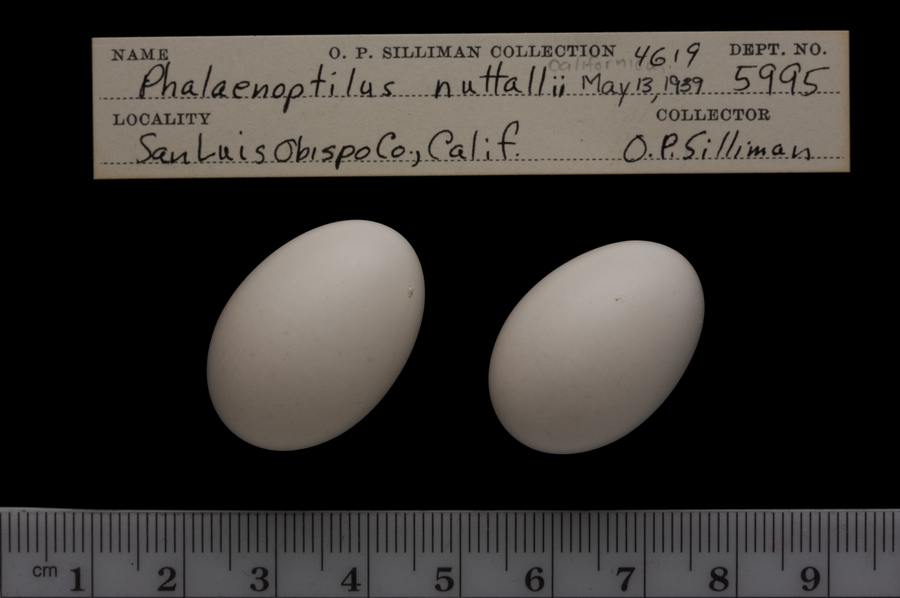 NAME O. P. SILLIMAN COLLECTION 4619 DEPT. NO.
californicus
Phalaenoptilus nuttallii May 13, 1939 5995
LOCALITY COLLECTOR
San Luis Obispo Co., Calif. O.P. Silliman
cm 1 2 3 4 5 6 7 8 9